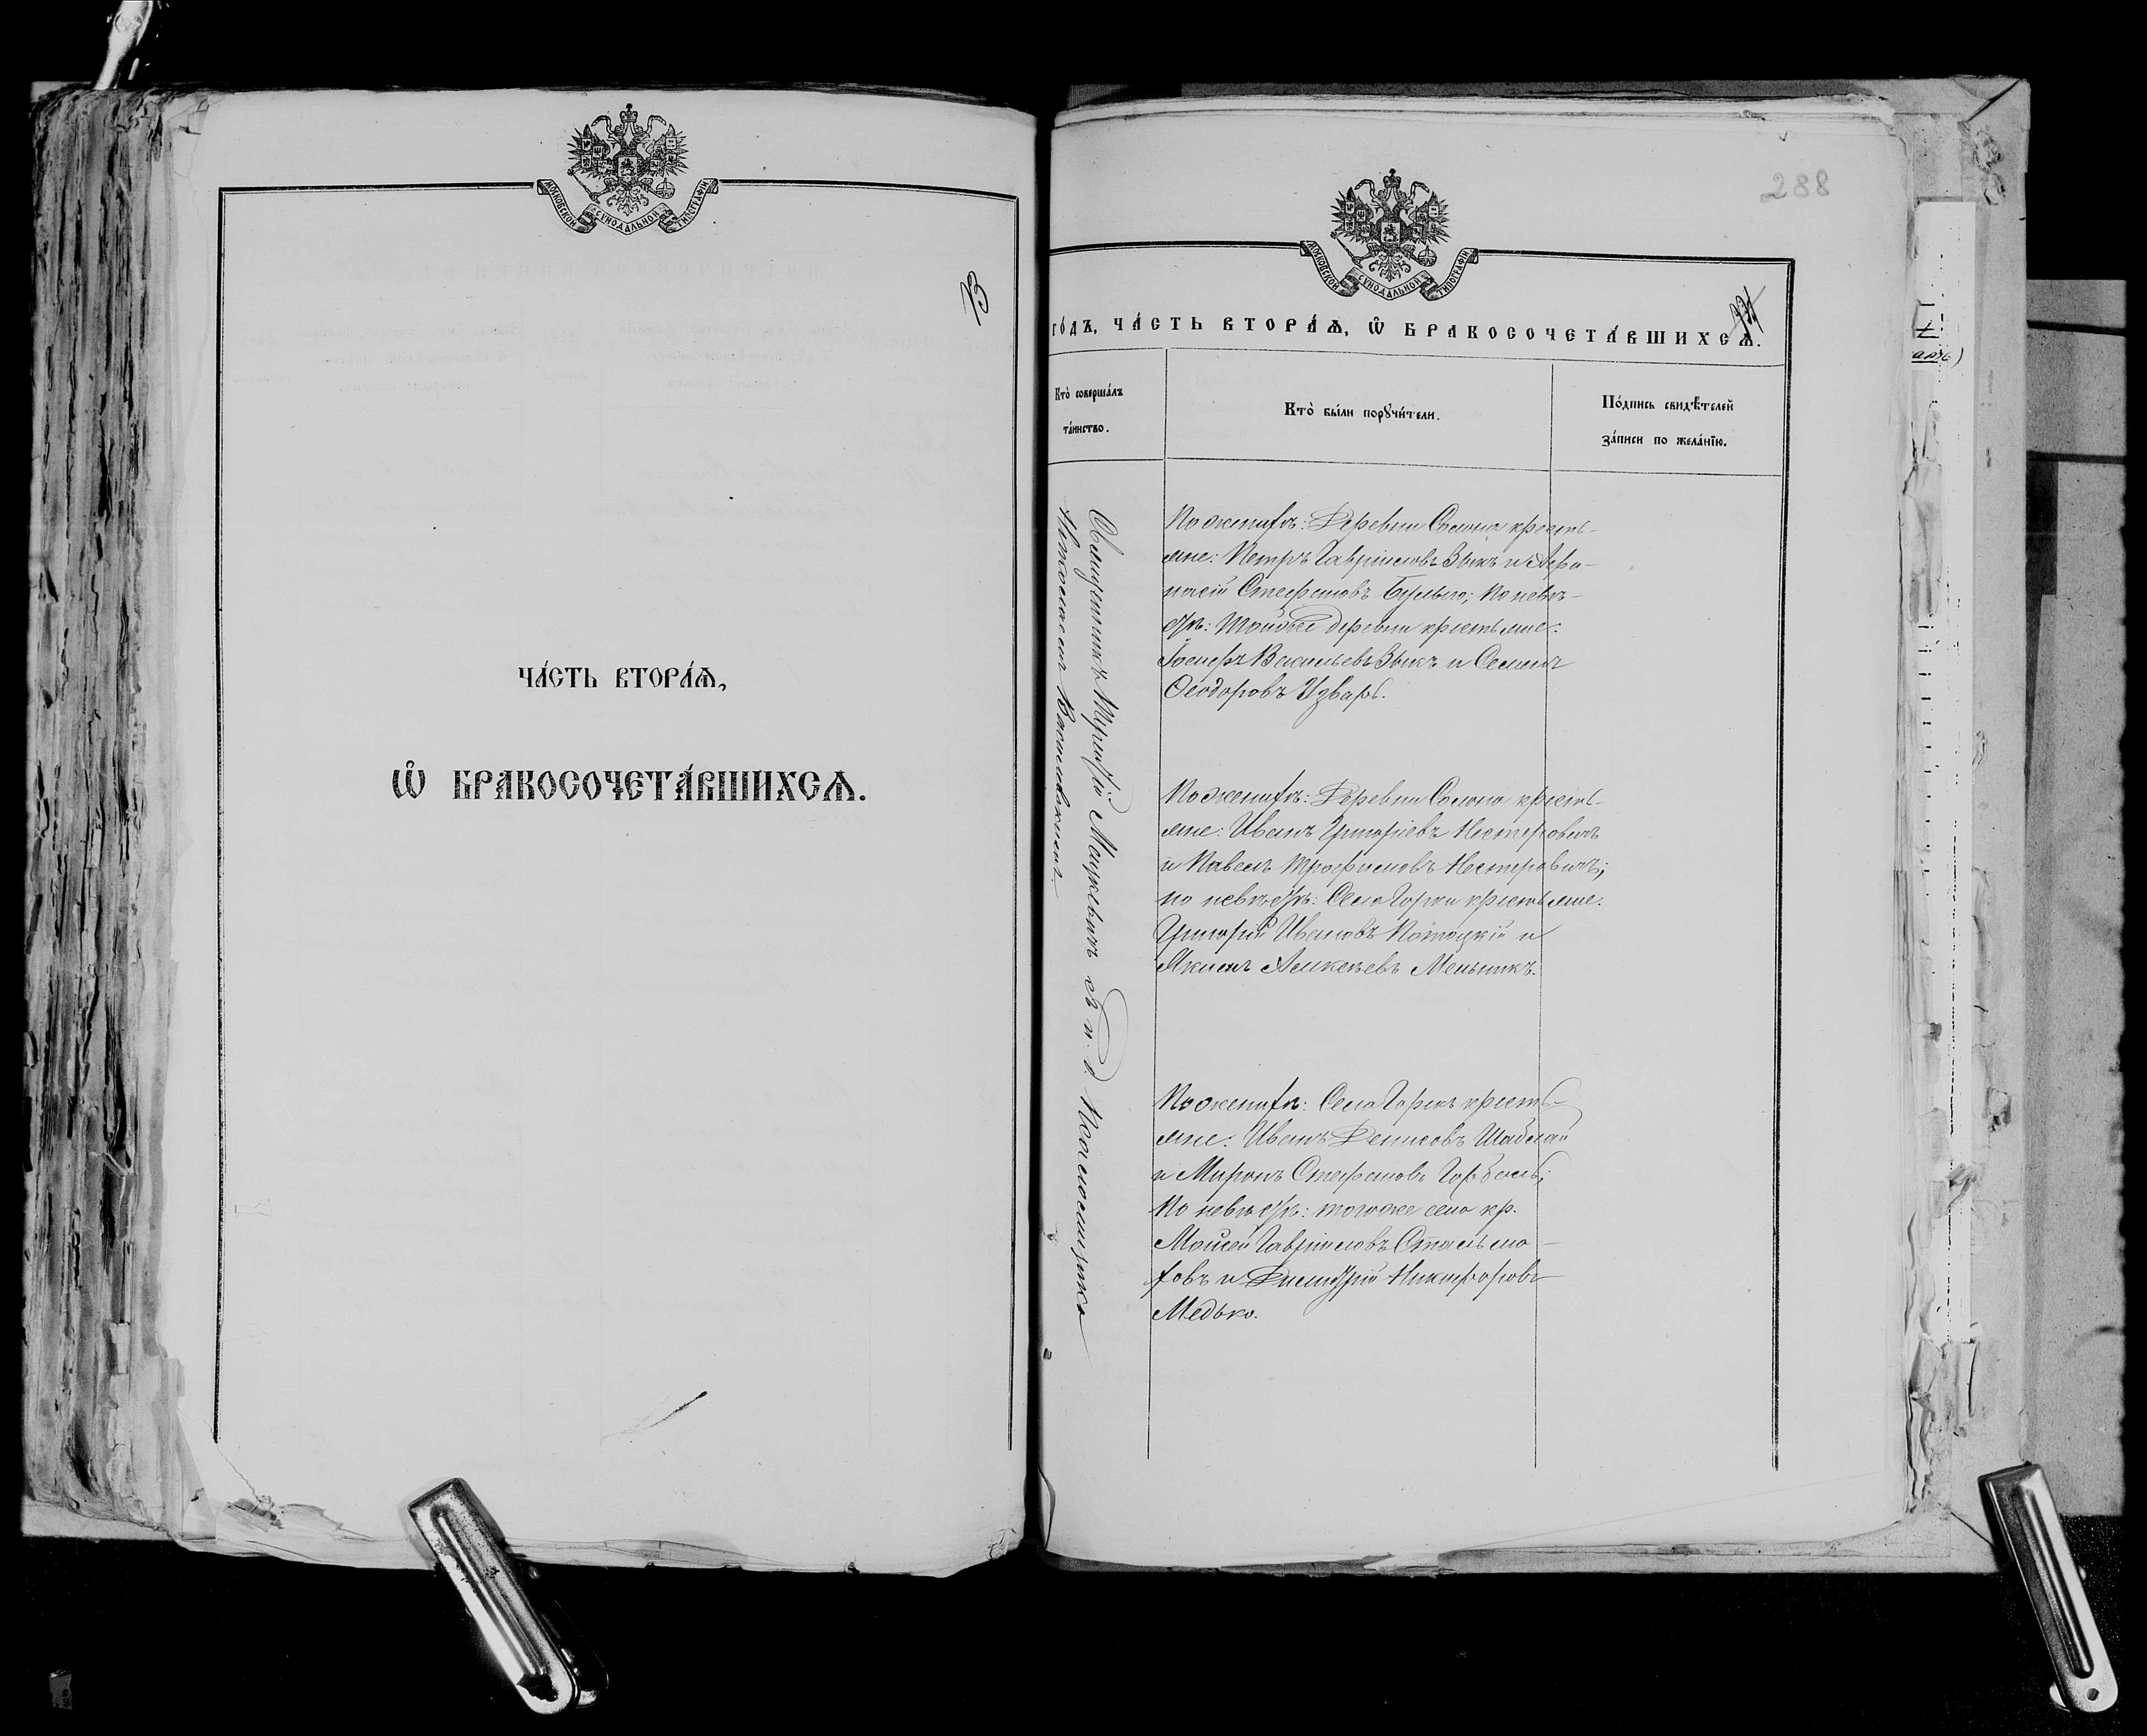 МОСКОВСКОЙ СУНОДАЛЬНОЙ ТИПОГРАФІИ
ЧА́СТЬ ВТОРА́Ѧ,
Ѽ БРАКОСОЧЕТА́ВШИХСѦ.
288
МОСКОВСКОЙ СУНОДАЛЬНОЙ ТИПОГРАФІИ
ГО́ДЪ, ЧА́СТЬ ВТОРА́Ѧ, Ѽ БРАКОСОЧЕТА́ВШИХСѦ.
Кто̀ соверша́лъ
та́инство.
Кто̀ бы́ли порꙋчи́тели.
По́дпись свидѣ́телей
за́писи по жела́нїю.
Священникъ Мацкевичъ съ и. д. псаломщика
По женихѣ: Деревни кресть-
яне: Петръ Гавріиловъ Зыкъ и Афа-
насій Стефановъ Бульго; По невѣ-
стѣ: тойже деревни крестьяне:
Іосифъ Васильевъ Зыкъ и Семенъ
Ѳеодоровъ Узваръ.
По женихѣ: Деревни кресть-
яне: Иванъ Григоріевъ Нестеровичъ
и Павелъ Трофимовъ Нестеровичъ;
по невѣстѣ: Села Горки крестьяне:
Григорій Ивановъ Потоцкій и
Якимъ Алексѣевъ Мельникъ.
По женихѣ: Села Горокъ кресть-
яне: Иванъ Денисовъ Шаблай
и Миронъ Стефановъ Горбаль;
По невѣстѣ: тогоже села кр.
Моисей Гавріиловъ Стальма-
ховъ и Димитрій Никифоровъ
Медько.